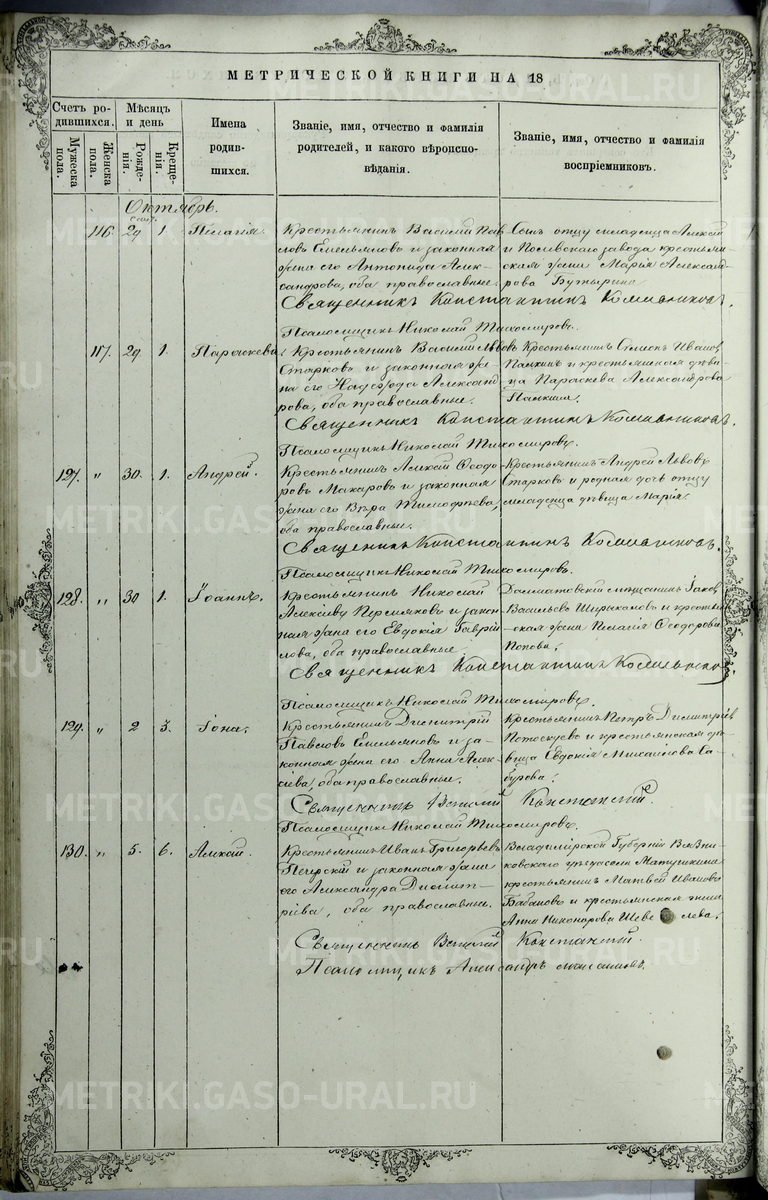 МЕТРИЧЕСКОЙ КНИГИ НА 18
Счетъ родившихся.
Мужеска пола.
Женска пола.
Мѣсяцъ и день
Рожденія.
Крещенія.
Имена родившихся.
Званіе, имя, отчество и фамилія родителей, и какого вѣроисповѣданія.
Званіе, имя, отчество и фамилія воспріемниковъ.
Октябрь.
Сент.
116. 29 1. Пелагія.
Крестьянинъ Василій Пав
ловъ Емельяновъ и законная
жена его Антонида Алек-
сандрова, оба православные.
Сынъ отцу младенца Алексѣй
и Полевскаго завода крестьян
ская жена Марія Александ
рова Бутырина
Священникъ Константинъ Комельниковъ.
Псаломщикъ Николай Тихомировъ.
117. 29. 1. Параскева.
Крестьянинъ Василій Львовъ
Старковъ и законная же-
на его Надежда Александ
рова, оба православные.
Крестьянинъ Симеонъ Ивановъ
Палкинъ и крестьянская дѣви
ца Параскева Александрова
Палкина.
Священникъ Константинъ Комельниковъ.
Псаломщикъ Николай Тихомировъ.
127. " 30. 1. Андрей.
Крестьянинъ Алексѣй Ѳеодо
ровъ Макаровъ и законная
жена его Вѣра Тимофѣева,
оба православные.
Крестьянинъ Андрей Львовъ
Старковъ и родная дочь отцу
младенца дѣвица Марія.
Священникъ Константинъ Комельниковъ.
Псаломщикъ Николай Тихомировъ.
128. " 30 1. Іоаннъ.
Крестьянинъ Николай
Алексѣевъ и закон
ная жена его Евдокія Гаврі
лова, оба православные.
Далматовскій мѣщанинъ Іаковъ
Васильевъ и крестьян
ская жена Пелагія Ѳеодорова
Попова.
Священникъ Константинъ Комельниковъ
Псаломщикъ Николай Тихомировъ.
129. " 2 3. Іона.
Крестьянинъ Димитрій
Павловъ Емельяновъ и за-
конная жена его Анна Алек
сіева, оба православные.
Крестьянинъ Петръ Димитріевъ
Потоскуевъ и крестьянская дѣ
вица Евдокія Михаилова Са-
бурова.
Священникъ Виталій
Псаломщикъ Николай Тихомировъ.
130. " 5. 6. Алексѣй.
Крестьянинъ Иванъ Григорьевъ
и законная жена
его Александра Димит-
ріева, оба православны.
Владимірской Губерніи Вязни
ковскаго уѣзда
крестьянинъ Матвѣй Ивановъ
Бабановъ и крестьянская жена
Анна Никонорова Шевелева.
Священникъ Виталій
Псаломщикъ Александръ
METRIKI.GASO-URAL.RU